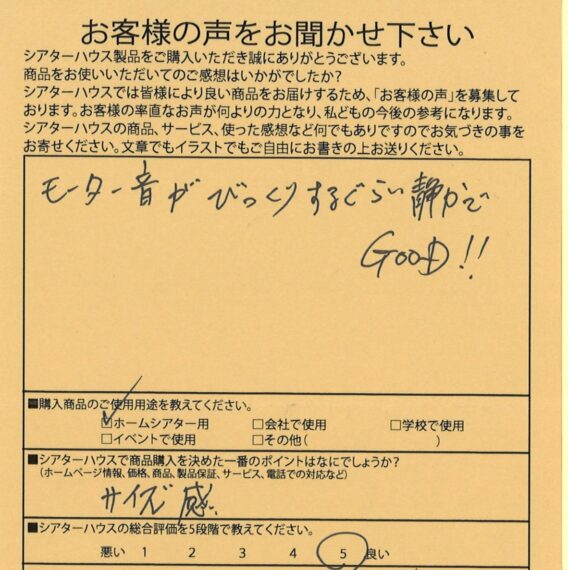 お客様の声をお聞かせ下さい
シアターハウス製品をご購入いただき誠にありがとうございます。
商品をお使いいただいてのご感想はいかがでしたか?
シアターハウスでは皆様により良い商品をお届けするため、「お客様の声」を募集して
おります。お客様の率直なお声が何よりの力となり、私どもの今後の参考になります。
シアターハウスの商品、サービス、使った感想など何でもありですのでお気づきの事を
お寄せください。文章でもイラストでもご自由にお書きの上お送りください。
モーター音がびっくりするぐらい静かで
GOOD!!
■購入商品のご使用用途を教えてください。
☑ホームシアター用 □会社で使用 □学校で使用
□イベントで使用 □その他( )
■シアターハウスで商品購入を決めた一番のポイントはなにでしょうか?
(ホームページ情報、価格、商品、製品保証、サービス、電話での対応など)
サイズ感。
■シアターハウスの総合評価を5段階で教えてください。
悪い 1 2 3 4 5 良い